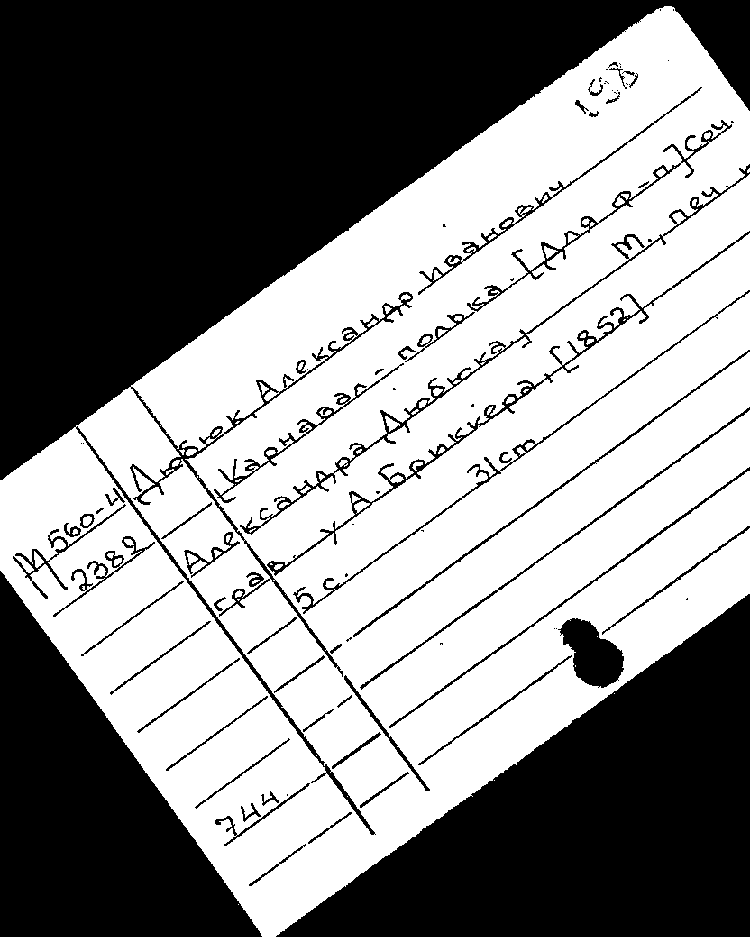 198
М560-4 Дюбюк, Александр Иванович
П2382 Карнавал-полька. [Для ф-п.] Соч.
Александра Дюбюка, М., печ.
грав. у А. Бриккера, [1852].
5 с. 31cm
744